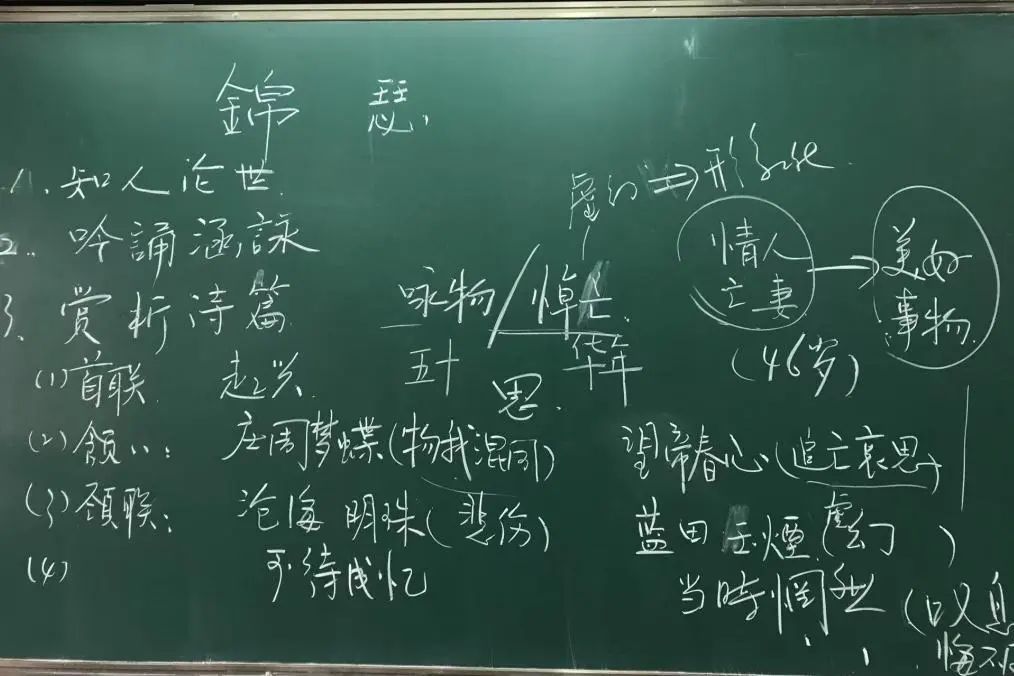 錦 瑟
1. 知人论世
虚幻 ⇒ 形象化
2. 吟誦涵詠
情人亡妻 → 美好事物
3. 赏析诗篇
咏物/悼亡
(46岁)
(1)首联 起兴 五十 思 华年
(2)颔 : 庄周梦蝶(物我混同) 望帝春心(追亡哀思)
(3)颈联: 沧海明珠(悲伤) 蓝田玉煙(虚幻)
(4) 可待成忆 当時惘然 (叹息